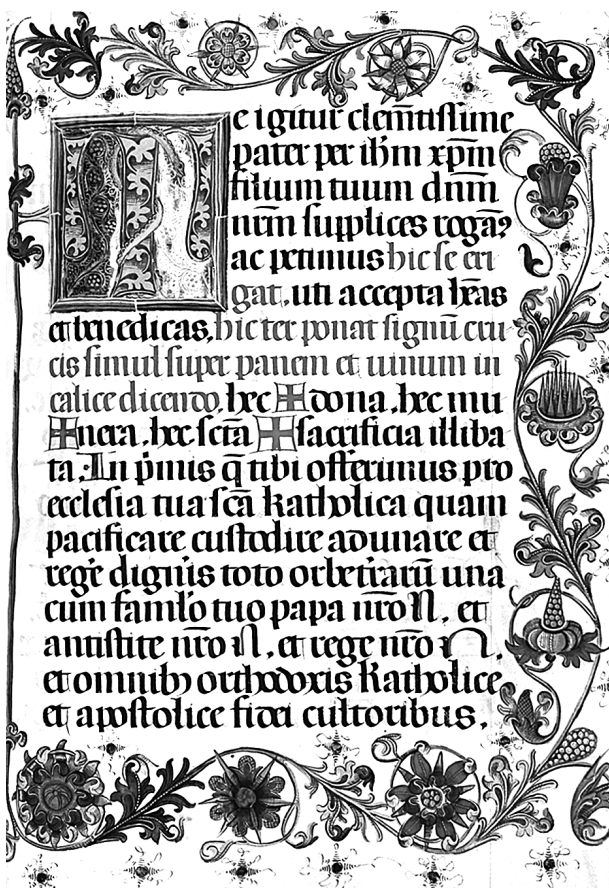 Te igitur clem̄tissime
pater per ih̄m xp̄m
filium tuum dn̄m
nr̄m supplices rogam⁹
ac petimus hic se eri
gat. uti accepta h̄eas
et benedicas. hic ter ponat signū cru
cis simul super panem et uinum in
calice dicendo. hec ✠ dona. hec mu
✠ nera. hec sc̄ta ✠ sacrificia illiba
ta. In p̄mis q̄ tibi offerimus pro
ecclesia tua sc̄a katholica quam
pacificare custodire adunare et
reg̓e dign̓is toto orbe t̓rarū una
cum faml̓o tuo papa nr̄o N. et
antistite nr̄o N. et rege nr̄o N.
et omnibꝫ orthodoxis katholice
et apostolice fidei cultoribus.